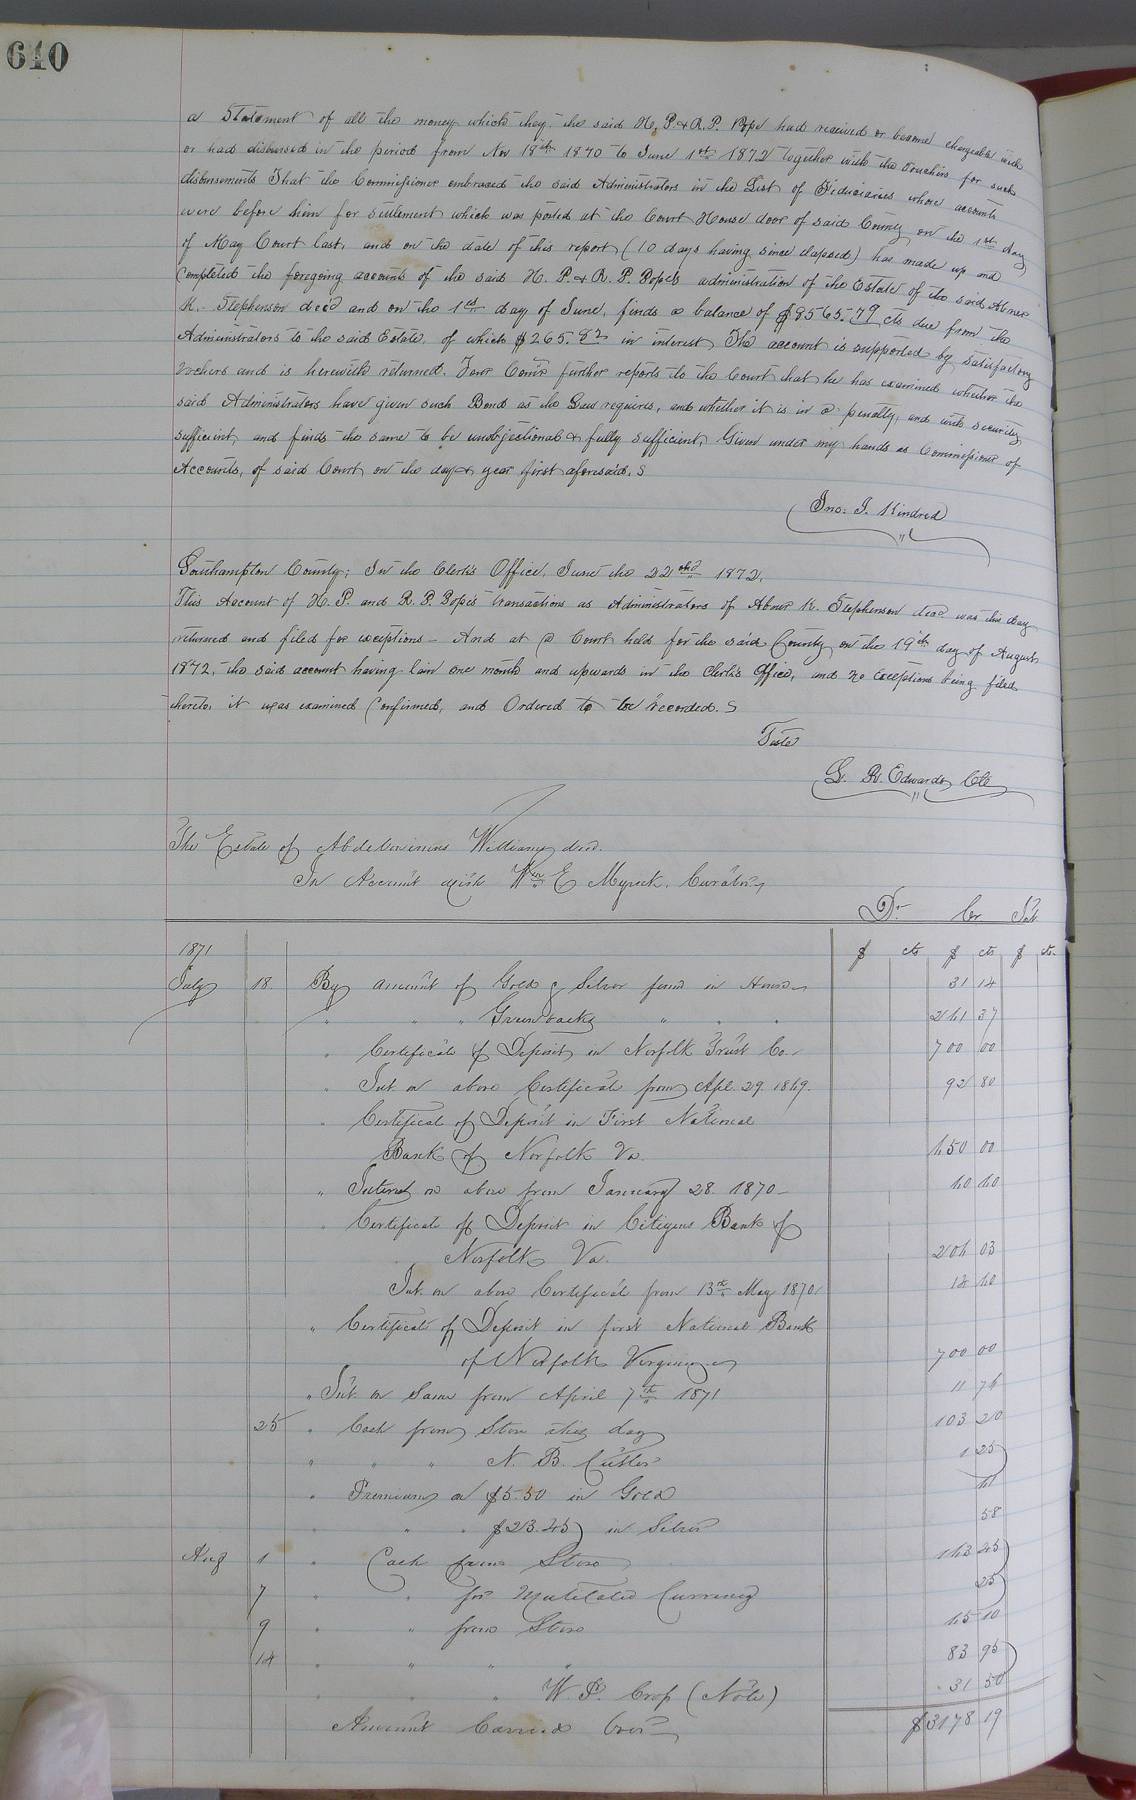 640
a Statement of all the money which they the said H, P. & R. P. Pope had received or become chargeable with
or had disbursed in the period from Nov 18th 1870 to June 1st 1872 together with the vouchers for such
disbursements That the Commissioner embraced the said Administrators in the List of Fiduciaries whose accounts
were before him for settlement which was posted at the Court House door of said County on the 1st day
of May Court last, and on the date of this report (10 days having since elapsed) has made up and
Completed the foregoing accounts of the said H. P. & R. P. Pope's administration of the Estate of the said Abner
K. Stephenson dec'd and on the 1st day of June, finds a balance of $8565.79 cts due from the
Administrators to the said Estate of which $265.82 in interest, The account is supported by satisfactory
Vochers and is herewith returned. Your Com'r further reports to the Court that he has examined whether the
said Administrators have given such Bond as the Law requires, and whether it is in a penalty, and with security
sufficient, and finds the same to be unobjectional & fully sufficient, Given under my hands as Commissioner of
Accounts, of said Court on the day & year first aforesaid.
Jno: J. Kindred
Southampton County; In the Clerk's Office, June the 22nd 1872,
This Account of H. P. and R. P. Pope's transactions as Administrators of Abner K. Stephenson decd was this day
returned and filed for exceptions - And at a Court held for the said County on the 19th day of August
1872, the said account having lain one month and upwards in the Clerk's Office, and no exceptions being filed
thereto, it was examined Confirmed, and Ordered to be recorded.
Teste
L. R. Edwards Clk
The Estate of Abdelonimus Williams decd.
In Account with Wm E Myrick, Curator
Dr Cr Int
1871 $ cts $ cts $ cts
July 18. By amount of Gold & Silver found in House 31 14
" " " Greenbacks " " " 241 37
" Certificate of Deposit in Norfolk Trust Co. 700 00
" Int on above Certificate from Apl. 29. 1869. 92 80
" Certificate of Deposit in First National
Bank of Norfolk Va. 450 00
" Interest on above from January 28. 1870 40 40
" Certificate of Deposit in Citizens Bank of
Norfolk Va. 204 03
Int. on above Certificate from 13th May 1870 14 40
" Certificate of Deposit in first National Bank
of Norfolk Virginia 700 00
" Int. on Same from April 7th 1871 11 76
25 " Cash from Store this day 103 20
" " " N. B. Cutler 1 25
" Premium on $5.50 in Gold 41
" " " $23.45 in Silver 58
Aug 1 " Cash from Store 143 45
7 " " for Mutilated Currency 25
9 " " from Store 45 10
14 " " " " 83 95
" " " W. P. Crop (Note) 31 50
Amount Carried Over $3178 19